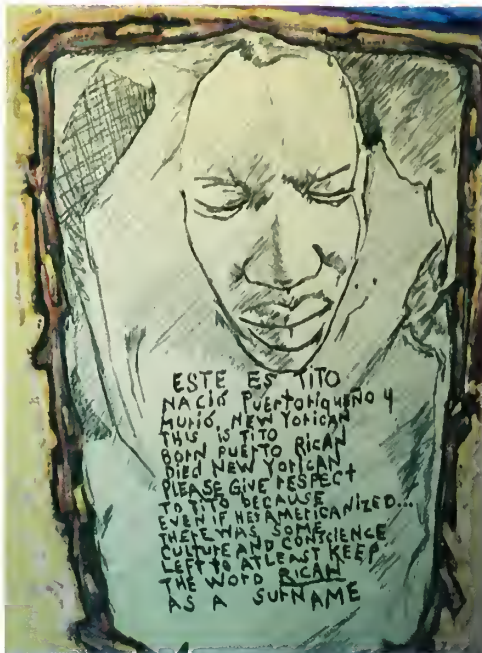 ESTE ES TITO
NACIÓ PUERTORIQUEÑO Y
MURIÓ, NEW YORICAN
THIS IS TITO
BORN PUERTO RICAN
DIED NEW YORICAN
PLEASE GIVE RESPECT
TO TITO BECAUSE
EVEN IF HES AMERICANIZED...
THERE WAS SOME
CULTURE AND CONSCIENCE
LEFT TO ATLEAST KEEP
THE WORD RICAN
AS A SURNAME